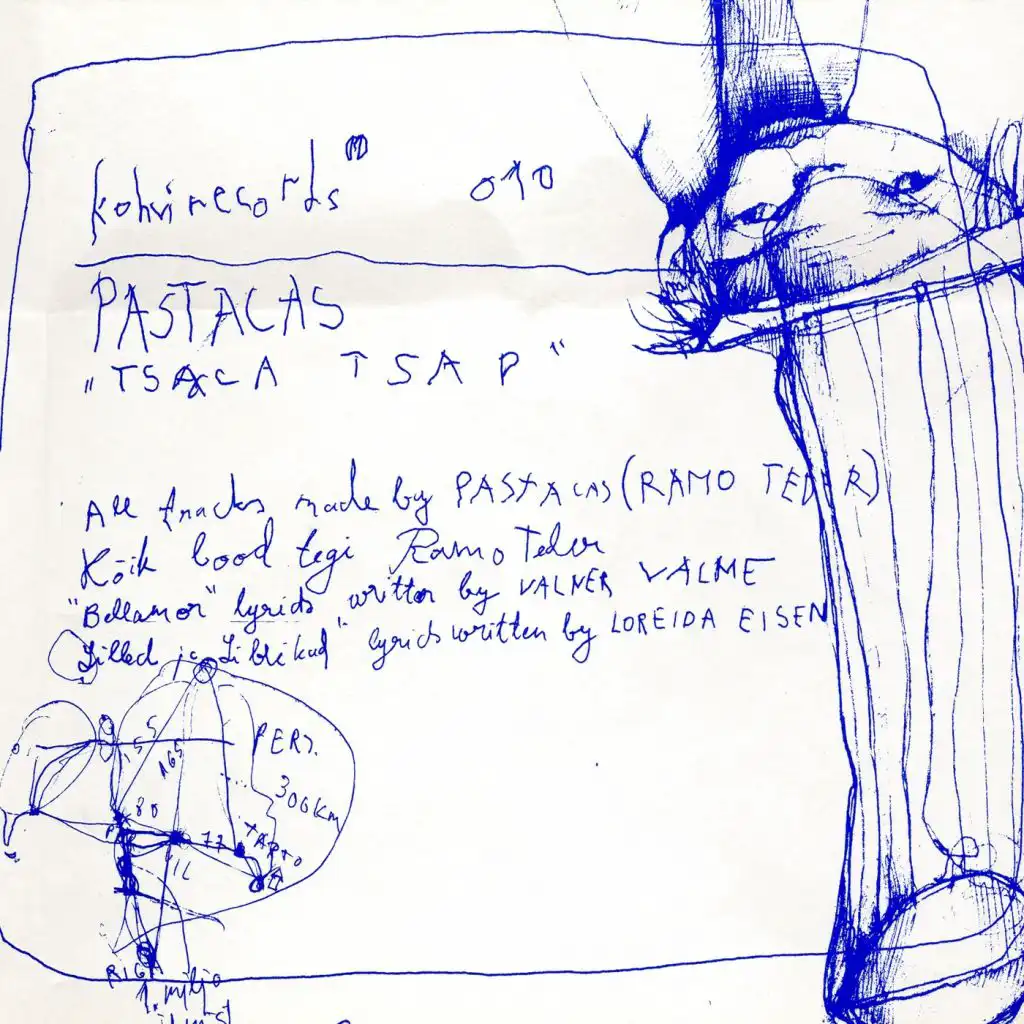 kohvirecords 010
PASTACAS
"TSACA TSAP"
All tracks made by PASTACAS (RAMO TEDER)
Kõik lood tegi Ramo Teder
"Bellamor" lyrics written by VALNER VALME
"Lilled ja Liblikad" lyrics written by LOREIDA EISEN
55
165
PERS.
300KM
80
77
TARTO
VIL
RIGA
1. miljo